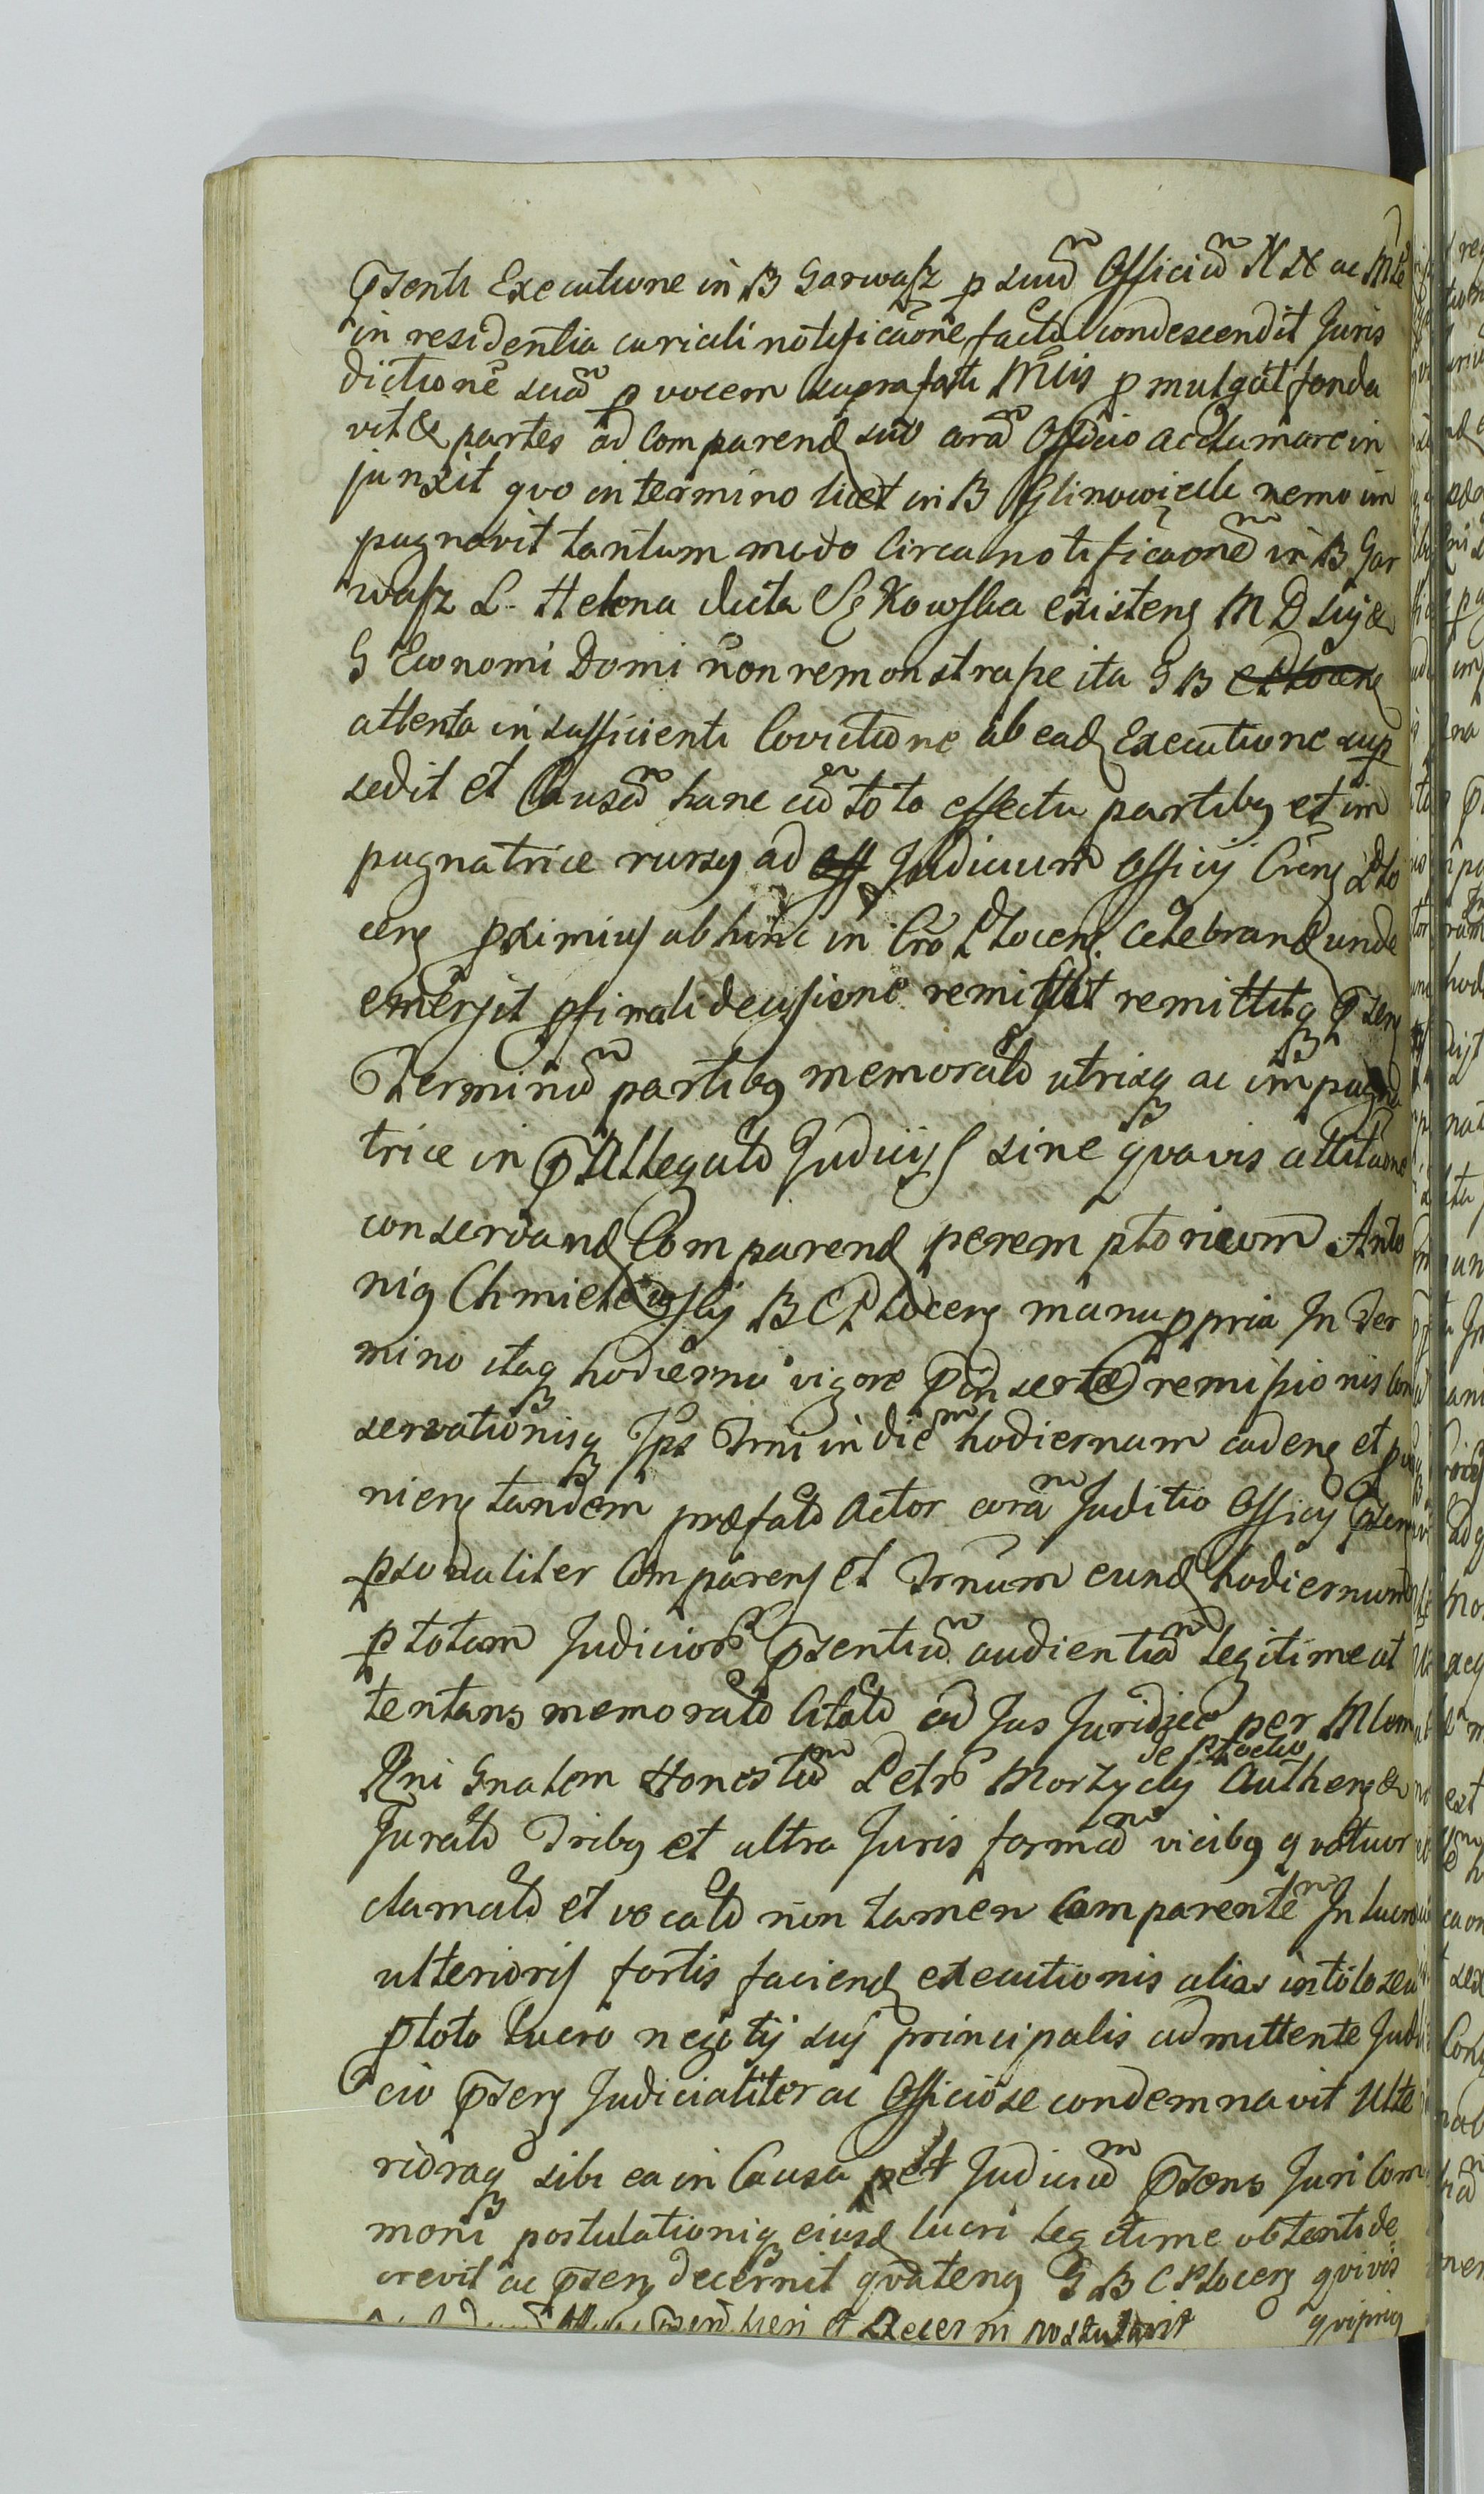 Pṙsenti Executione in B Garwasz p suum Officiũ N N ac Mle
in residentia curiali notificaõne facta condescendit Juris
dictionẽ suã p vocem suprafati Mlis pmulgat funda
vit & partes ad Comparend suo corã Officio acclamare in
junxit quo in termino licet in B Glinowiecki nemo im
pugnavit tantum modo Circa notificaonẽ in B Gar
wasz L. Helena dicta Sękowska existens M D sui &
G Economi Domi non remonstrasse ita G B
attenta insufficienti Covictione ab ead Executione sup
sedit et Causã hanc cũ toto effectu partibq et im
pugnatrice rursq ad Judicium Officij Crens Plo
cens pximius ab hinc in Cro Plocens Celebrand unde
emersit p finali decisione remissit remittitq Pṙsens
Terminũ partibq memorat utrisq ac impugna
trice in Pṙallegat Judicijs sine quavis attitaone
conservand Comparend peremptorium Anto
niq Chmielewskij B C Plocens manu ppria In Ter
mino itaq hodierno vigore Pṙinsertæ remissionis con
servationisq Ips Trni in diẽ hodiernum cadens et
niens tandem præfat Actor corã Juditio Officij Pṙsen
psonaliter Comparens et Trnum eund hodiernum
p totam Judicior Pṙsentiũ audientiã legitime at
tentans memorat Citat ad Jus Juridice per Mlem
Rni Gnalem Honestũ Petr Morzycky de Plocko Authens &
Jurat Tribq et ultra Juris formã vicibq quatuor
clamat et vocat non tamen Comparentẽ In lucro
ulterioris fortis faciend executionis alias in toto seu
p toto lucro negotij sui principalis admittente Judi
cio Pṙsens Judicialiter ac Officiose condemnavit Ulte
rioraq sibi ea in Causa p et Judiciũ Pṙsens Juri Com
moni postulationiq eiusd lucri legitime obtenti de
crevit ac Pṙsens decernit quatenq G B C Plocens quivis
et Decerni postulavit quiprius